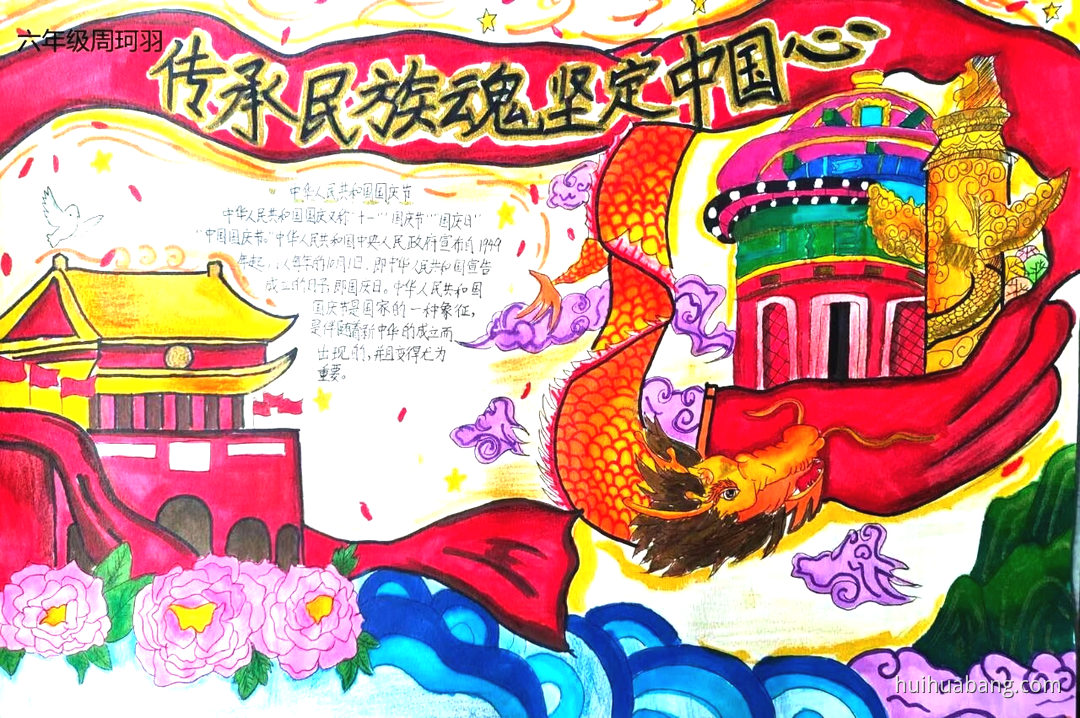 六年级周珂羽
传承民族魂坚定中国心
中华人民共和国国庆节
中华人民共和国国庆又称"十一""国庆节""国庆日"
"中国国庆节。"中华人民共和国中央人民政府宣布自1949
年起,以每年的10月1日,即中华人民共和国宣告
成立的日子,即国庆日。中华人民共和国
国庆节是国家的一种象征,
是伴随着新中华的成立而
出现的,并且变得尤为
重要。
huihuabang.com